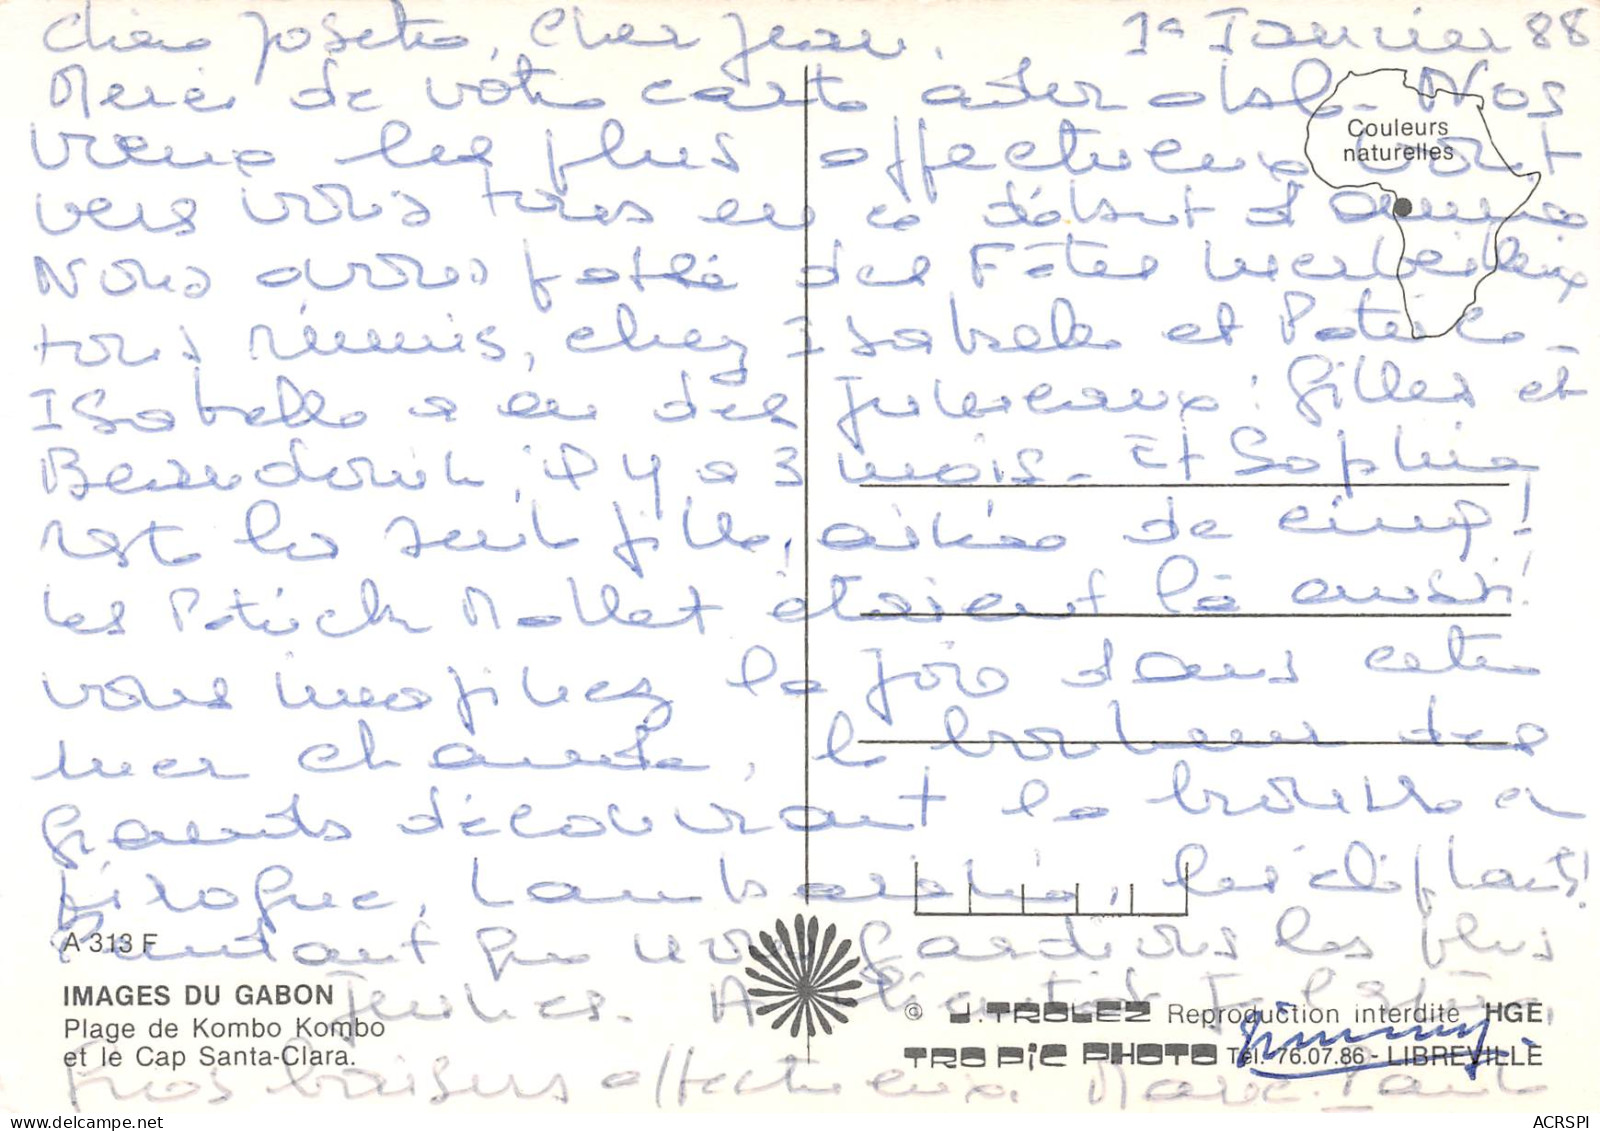 Chère Josette, Cher Jean, 1er Janvier 88
Merci de votre carte Nos
vœux les plus affectueux vont
Couleurs
naturelles
vers vous tous en ce début d'année
Nous avons passé des Fêtes merveilleuses
tous réunis, chez Isabelle et Patrick -
Isabelle a eu des jumeaux : Gilles et
Beaudouin, il y a 3 mois - Et Sophie
reste la seule fille, aînée de cinq !
les Patrick Mallet étaient là aussi !
vous imaginez la joie dans cette
mer chaude, le bonheur des
grands découvrant la brousse en
pirogue, Lambaréné, les éléphants !
pendant que nous gardions les plus
A 313 F
jeunes. A bientôt
IMAGES DU GABON
Plage de Kombo Kombo
et le Cap Santa-Clara.
© J. TROLEZ Reproduction interdite HGE
TROPIC PHOTO Tél. 76.07.86 - LIBREVILLE
Gros baisers affectueux. Marie-Paule
ACRSPI